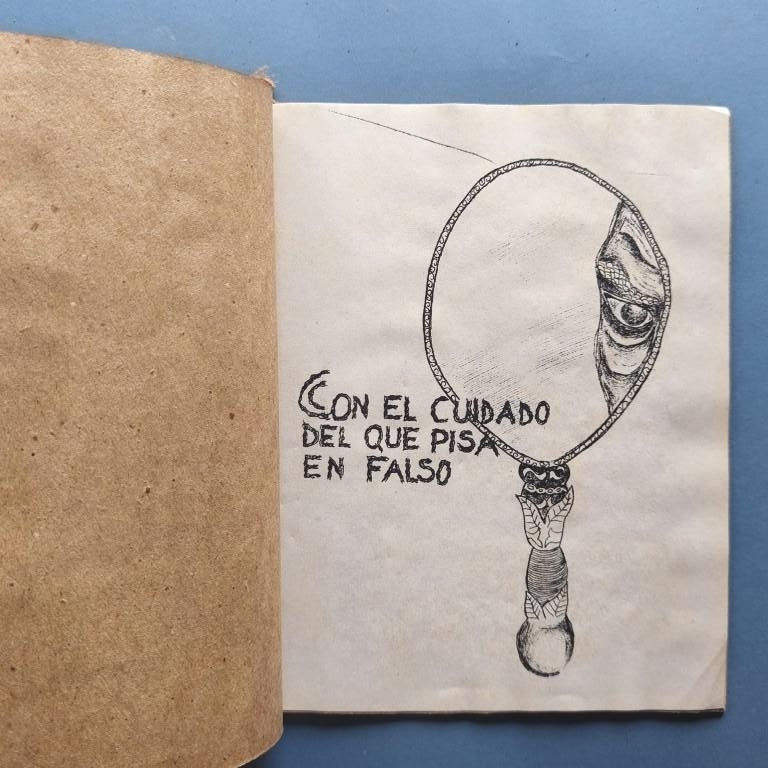 CON EL CUIDADO
DEL QUE PISA
EN FALSO